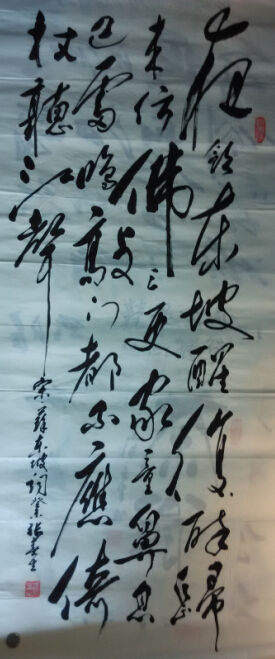 夜飲东坡醒復醉歸
来仿佛三更家童鼻息
已雷鳴敲门都不應倚
杖聽江聲
宋蘇东坡词